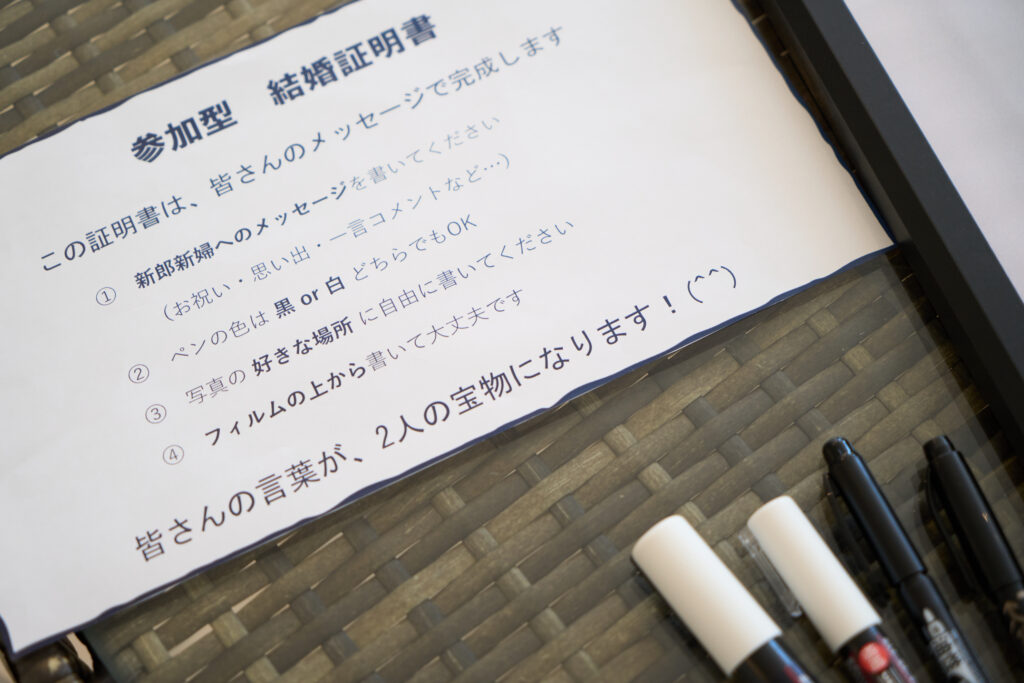 参加型　結婚証明書
この証明書は、皆さんのメッセージで完成します
① 新郎新婦へのメッセージを書いてください
（お祝い・思い出・一言コメントなど…）
② ペンの色は 黒 or 白 どちらでもOK
③ 写真の 好きな場所 に自由に書いてください
④ フィルムの上から書いて大丈夫です
皆さんの言葉が、2人の宝物になります！(^^)